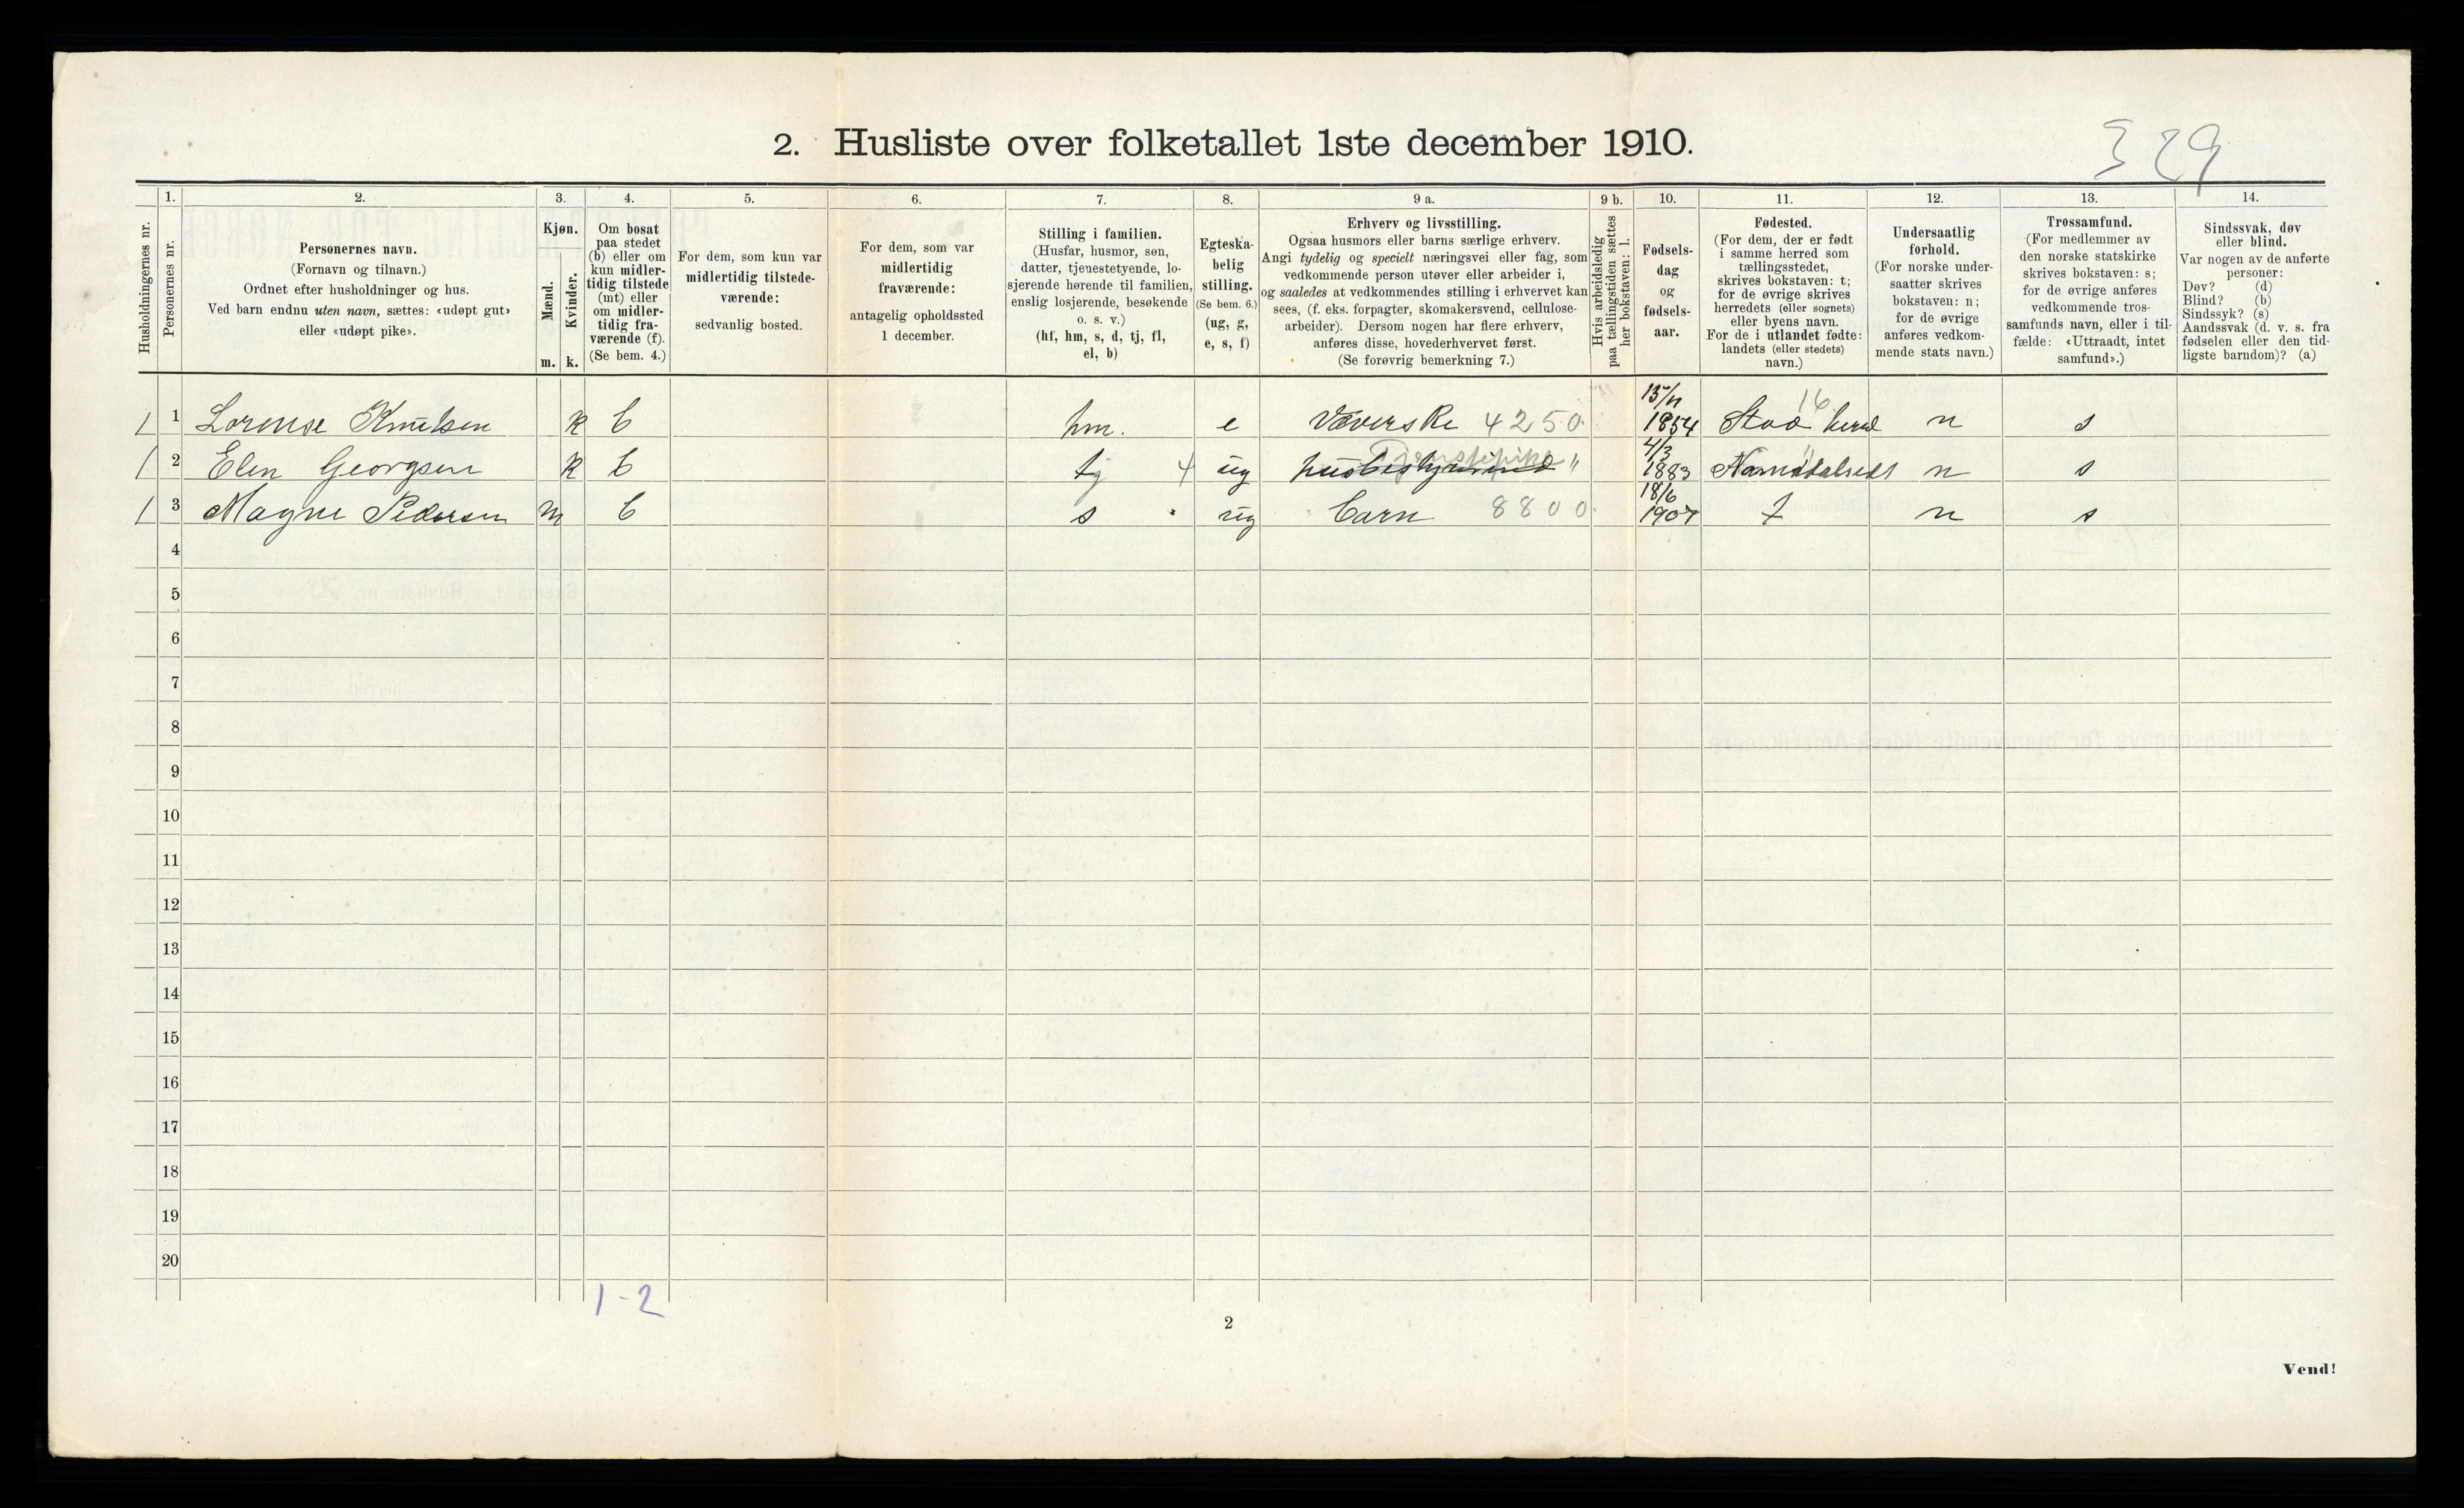 329
2. Husliste over folketallet 1ste december 1910.
Husholdningernes nr.
1.
Personernes nr.
2.
Personernes navn.
(Fornavn og tilnavn.)
Ordnet efter husholdninger og hus.
Ved barn endnu uten navn, sættes: «udøpt gut»
eller «udøpt pike».
3.
Kjøn.
Mænd.
Kvinder.
m. k.
4.
Om bosat
paa stedet
(b) eller om
kun midler-
tidig tilstede
(mt) eller
om midler-
tidig fra-
værende (f).
(Se bem. 4.)
5.
For dem, som kun var
midlertidig tilstede-
værende:
sedvanlig bosted.
6.
For dem, som var
midlertidig
fraværende:
antagelig opholdssted
1 december.
7.
Stilling i familien.
(Husfar, husmor, søn,
datter, tjenestetyende, lo-
sjerende hørende til familien,
enslig losjerende, besøkende
o. s. v.)
(hf, hm, s, d, tj, fl,
el, b)
8.
Egteska-
belig
stilling.
(Se bem. 6.)
(ug, g,
e, s, f)
9 a.
Erhverv og livsstilling.
Ogsaa husmors eller barns særlige erhverv.
Angi tydelig og specielt næringsvei eller fag, som
vedkommende person utøver eller arbeider i,
og saaledes at vedkommendes stilling i erhvervet kan
sees, (f. eks. forpagter, skomakersvend, cellulose-
arbeider). Dersom nogen har flere erhverv,
anføres disse, hovederhvervet først.
(Se forøvrig bemerkning 7.)
9 b.
Hvis arbeidsledig
paa tællingstiden sættes
her bokstaven: l.
10.
Fødsels-
dag
og
fødsels-
aar.
11.
Fødested.
(For dem, der er født
i samme herred som
tællingsstedet,
skrives bokstaven: t;
for de øvrige skrives
herredets (eller sognets)
eller byens navn.
For de i utlandet fødte:
landets (eller stedets)
navn.)
12.
Undersaatlig
forhold.
(For norske under-
saatter skrives
bokstaven: n;
for de øvrige
anføres vedkom-
mende stats navn.)
13.
Trossamfund.
(For medlemmer av
den norske statskirke
skrives bokstaven: s;
for de øvrige anføres
vedkommende tros-
samfunds navn, eller i til-
fælde: «Uttraadt, intet
samfund».)
14.
Sindssvak, døv
eller blind.
Var nogen av de anførte
personer:
Døv? (d)
Blind? (b)
Sindssyk? (s)
Aandssvak (d. v. s. fra
fødselen eller den tid-
ligste barndom)? (a)
15/11 16
1 1 Lorense Knutsen k b hm. e Væverske 4250. 1854 Stod herred n s
4/3 Tjenstepike "
1 2 Elen Georgsen k b tj 4 ug husbestyrerinde " 1883 Namdalseidt n s
18/6
1 3 Magne Pedersen m b s ug barn 8800. 1907 t n s
4
5
6
7
8
9
10
11
12
13
14
15
16
17
18
19
20
1-2
2
Vend!